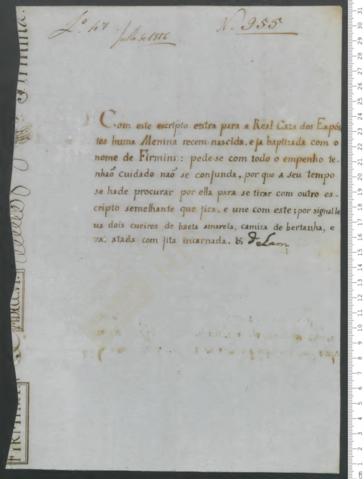 Lº 47 Julho de 1816 N. 955
Com este escripto entra para a Real Caza dos Expós
tos huma Menina recem-nascida, e ja baptizada com o
nome de Firmini: pede-se com todo o empenho te-
nhaõ cuidado naõ se confunda, por que a seu tempo
se hade procurar por ella para se tirar com outro es-
cripto semelhante que fica, e une com este: por signal le
va dois cueiros de baeta amarela, camiza de bertanha, e
vai atada com fita incarnada. &